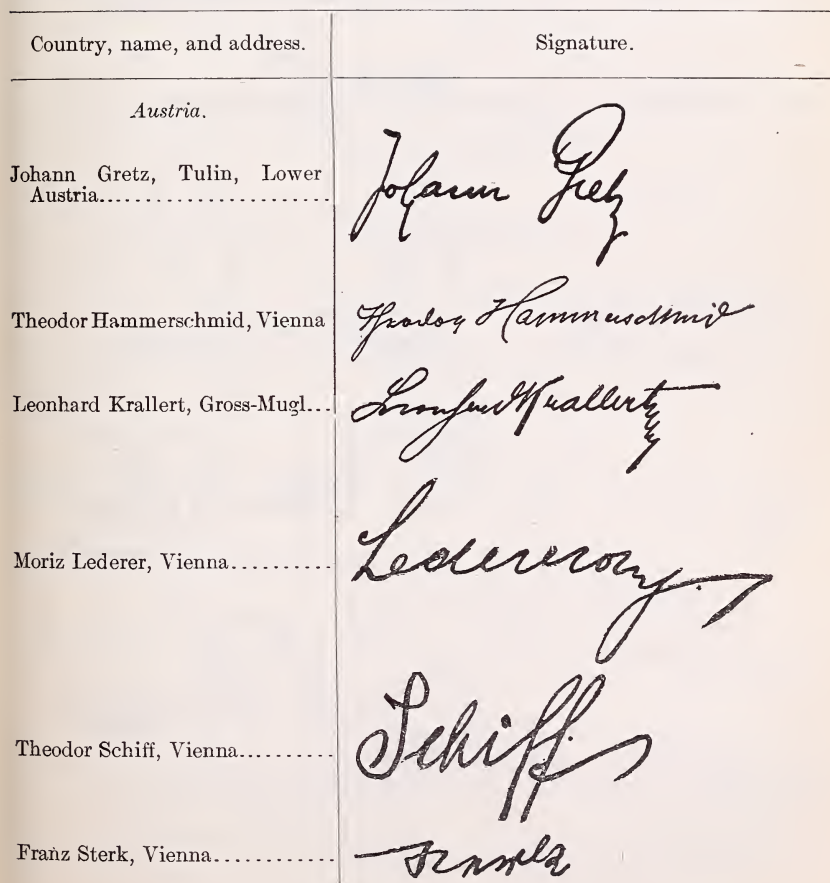 Country, name, and address. Signature.
Austria.
Johann Gretz, Tulin, Lower
Austria...................... Johann Gretz
Theodor Hammerschmid, Vienna Theodor Hammerschmid
Leonhard Krallert, Gross-Mugl... Leonhard Krallert
Moriz Lederer, Vienna.......... Lederer
Theodor Schiff, Vienna.......... Schiff
Franz Sterk, Vienna............